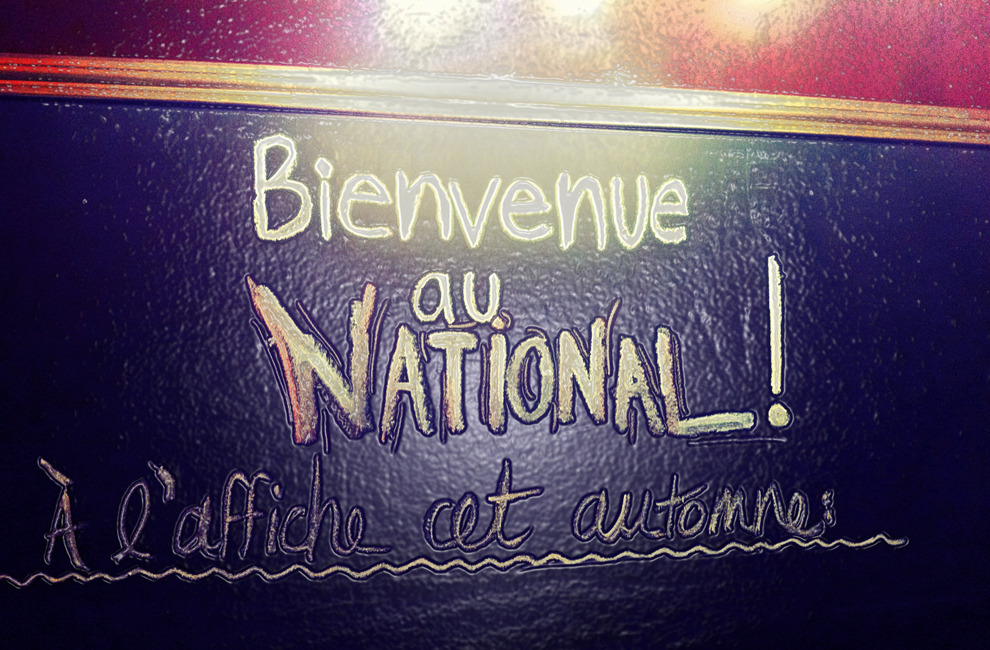 Bienvenue
au
NATIONAL!
À l'affiche cet automne: